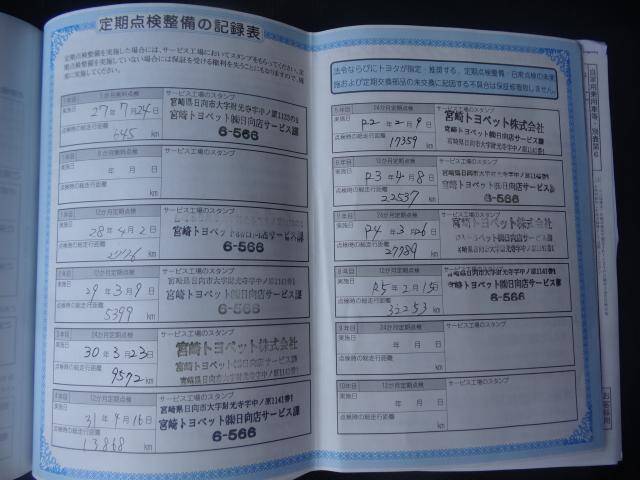 定期点検整備の記録表
定期点検整備を実施した場合には、サービス工場においてスタンプをもらってください。定
期点検整備を実施していない場合には保証を受ける権利を失うことにもなりますので、確
実に実施してください。
1か月定期点検 サービス工場のスタンプ
実施日
27年7月24日
点検時の総走行距離
645 km
宮崎トヨペット㈱日向店サービス課
6-566
6か月無料点検 サービス工場のスタンプ
実施日 年 月 日
点検時の総走行距離
km
1年目 12か月定期点検 サービス工場のスタンプ
実施日
28年4月2日
点検時の総走行距離
km
宮崎トヨペット㈱日向店サービス課
6-566
2年目 12か月定期点検 サービス工場のスタンプ
実施日
29年3月9日
点検時の総走行距離
5399 km
宮崎県日向市大字財光寺字中ノ原1141番1
宮崎トヨペット㈱日向店サービス課
6-566
3年目 24か月定期点検 サービス工場のスタンプ
実施日
30年3月23日
点検時の総走行距離
9572 km
宮崎トヨペット株式会社
4年目 12か月定期点検 サービス工場のスタンプ
実施日
31年4月16日
点検時の総走行距離
13868 km
宮崎県日向市大字財光寺字中ノ原1141番1
宮崎トヨペット㈱日向店サービス課
6-566
法令ならびにトヨタが指定・推奨する、定期点検整備・日常点検の未実
施および定期交換部品の未交換に起因する不具合は保証修理致しません。
5年目 24か月定期点検 サービス工場のスタンプ
実施日
R2年2月9日
点検時の総走行距離
17359 km
宮崎トヨペット株式会社
6年目 12か月定期点検 サービス工場のスタンプ
実施日
R3年4月8日
点検時の総走行距離
22537 km
宮崎県日向市大字財光寺字中ノ原1141番1
宮崎トヨペット㈱日向店サービス課
6-566
7年目 24か月定期点検 サービス工場のスタンプ
実施日
R4年3月26日
点検時の総走行距離
27789 km
宮崎トヨペット株式会社
8年目 12か月定期点検 サービス工場のスタンプ
実施日
R5年2月15日
点検時の総走行距離
32253 km
宮崎トヨペット㈱日向店サービス課
6-566
9年目 24か月定期点検 サービス工場のスタンプ
実施日 年 月 日
点検時の総走行距離
km
10年目 12か月定期点検 サービス工場のスタンプ
実施日 年 月 日
点検時の総走行距離
km